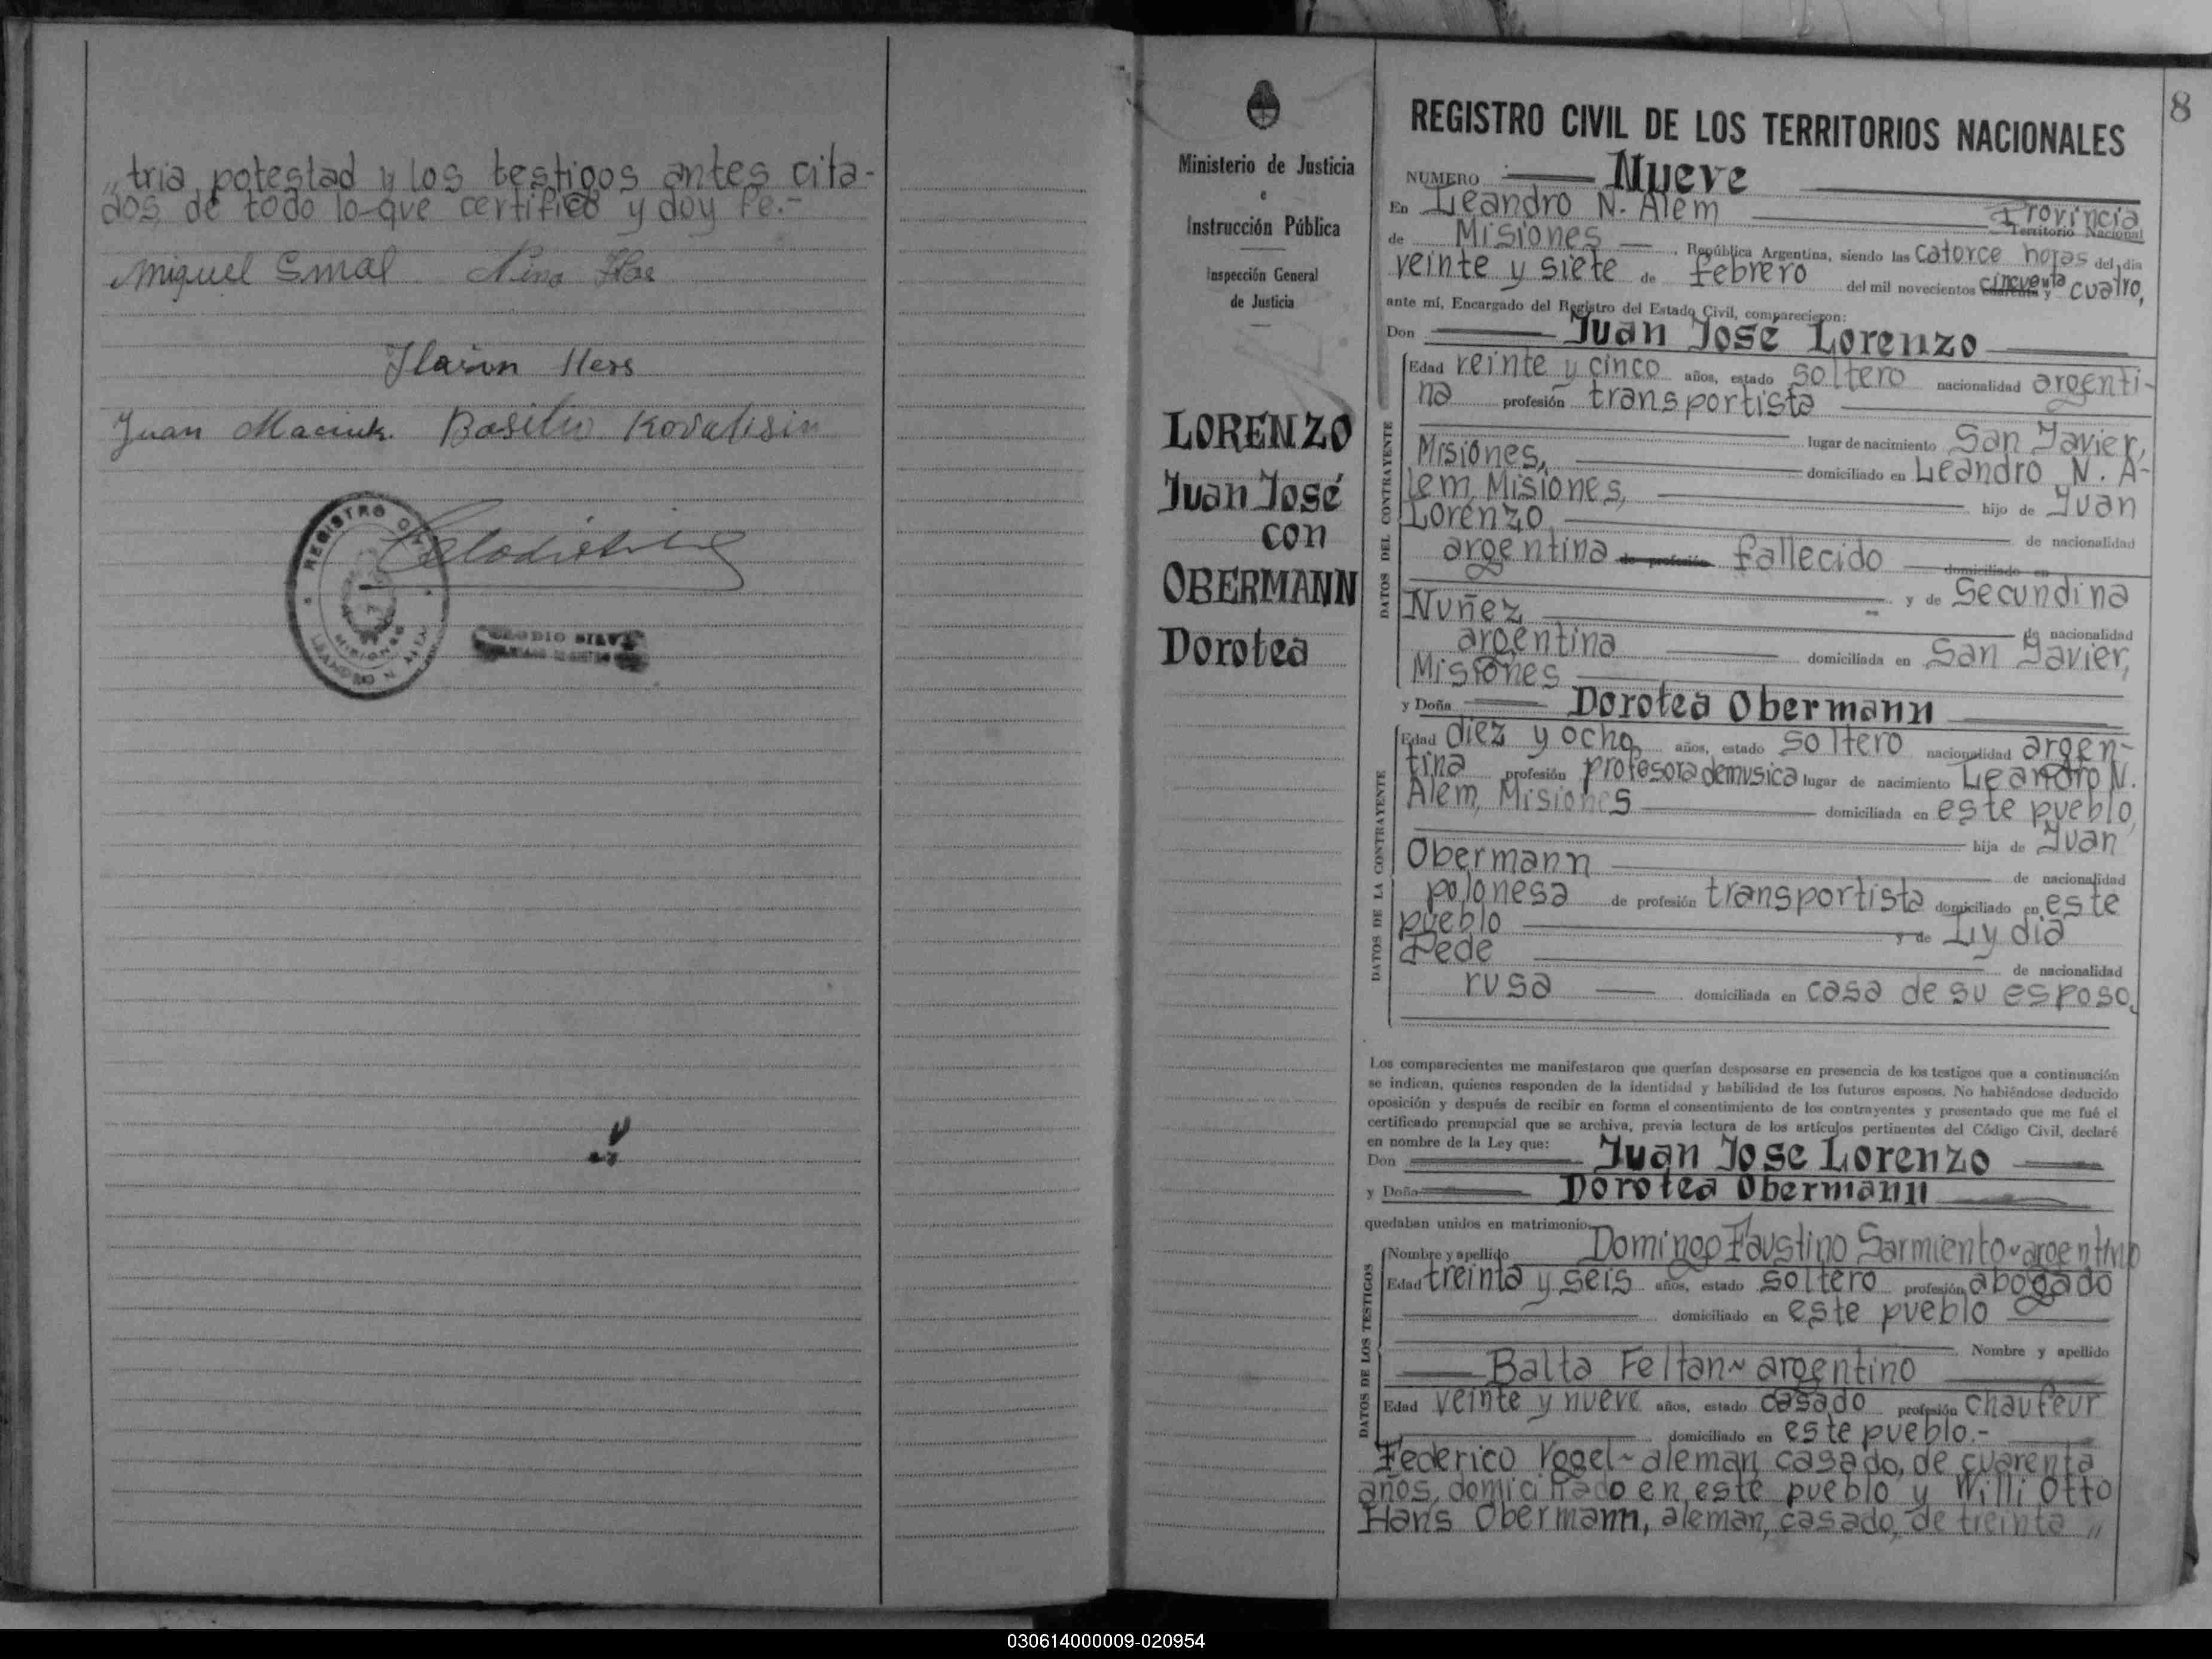 „tria potestad y los testigos antes cita-
dos, de todo lo que certifico y doy fe.-
Miguel Smal Nina
Ilarion Hers
Juan Maciuk. Basilio Kovalisin
REGISTRO
MISIONES
LEANDRO N. ALEM
8
Ministerio de Justicia
e
Instrucción Pública
Inspección General
de Justicia
LORENZO
Juan José
con
OBERMANN
Dorotea
REGISTRO CIVIL DE LOS TERRITORIOS NACIONALES
NUMERO Nueve
En Leandro N. Alem Provincia
Territorio Nacional
de Misiones, República Argentina, siendo las catorce horas del día
veinte y siete de febrero del mil novecientos cincuenta y cuatro,
ante mí, Encargado del Registro del Estado Civil, comparecieron:
Don Juan José Lorenzo
DATOS DEL CONTRAYENTE
Edad veinte y cinco años, estado soltero nacionalidad argenti-
na profesión transportista
lugar de nacimiento San Javier,
Misiones, domiciliado en Leandro N. A-
lem, Misiones, hijo de Juan
Lorenzo de nacionalidad
argentina de profesión fallecido domiciliado en
y de Secundina
Nuñez de nacionalidad
argentina domiciliada en San Javier,
Misiones
y Doña Dorotea Obermann
DATOS DE LA CONTRAYENTE
Edad diez y ocho años, estado soltero nacionalidad argen-
tina profesión profesora de musica lugar de nacimiento Leandro N.
Alem, Misiones domiciliada en este pueblo,
hija de Juan
Obermann de nacionalidad
polonesa de profesión transportista domiciliado en este
pueblo y de Lydia
Pede de nacionalidad
rusa domiciliada en casa de su esposo.
Los comparecientes me manifestaron que querían desposarse en presencia de los testigos que a continuación
se indican, quienes responden de la identidad y habilidad de los futuros esposos. No habiéndose deducido
oposición y después de recibir en forma el consentimiento de los contrayentes y presentado que me fué el
certificado prenupcial que se archiva, previa lectura de los artículos pertinentes del Código Civil, declaré
en nombre de la Ley que:
Don Juan Jose Lorenzo
y Doña Dorotea Obermann
quedaban unidos en matrimonio.
DATOS DE LOS TESTIGOS
Nombre y apellido Domingo Faustino Sarmiento~argentino
Edad treinta y seis años, estado soltero profesión abogado
domiciliado en este pueblo
Nombre y apellido
Balta Feltan~ argentino
Edad veinte y nueve años, estado casado profesión chaufeur
domiciliado en este pueblo.-
Federico Vogel~aleman, casado, de cuarenta
años, domiciliado en este pueblo y Willi Otto
Hans Obermann, aleman, casado, de treinta „
030614000009-020954